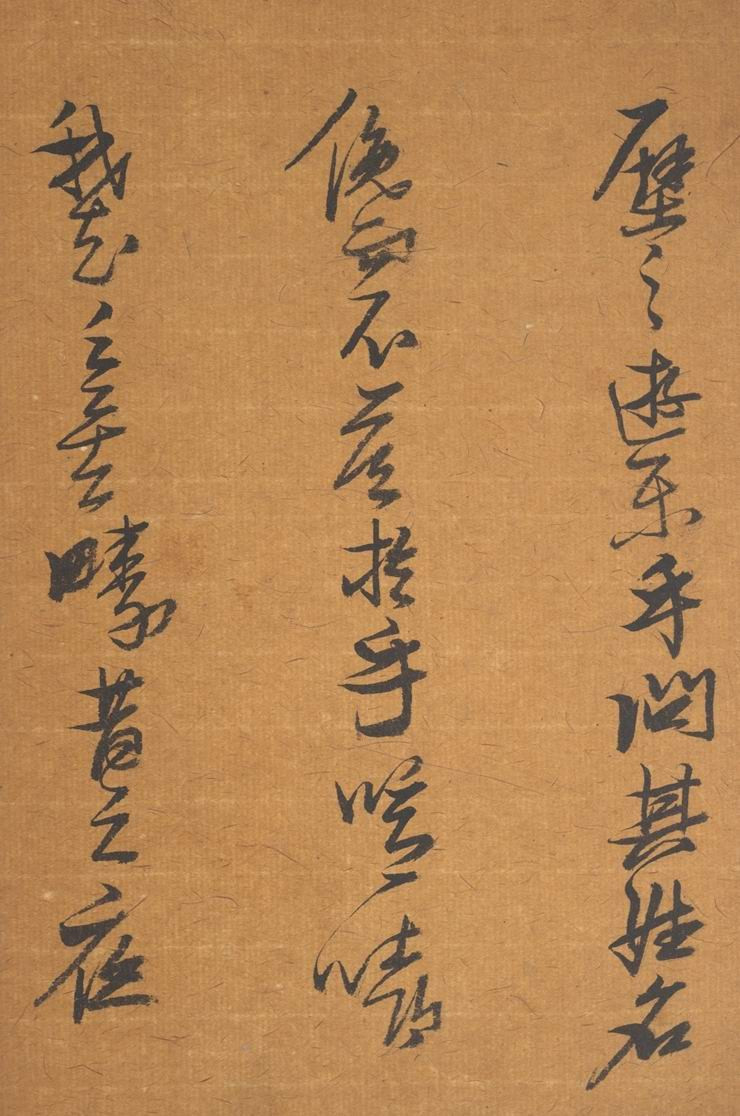 壁之遊樂乎問其姓名
俛而不答於乎噫嘻
我知之矣疇昔之夜